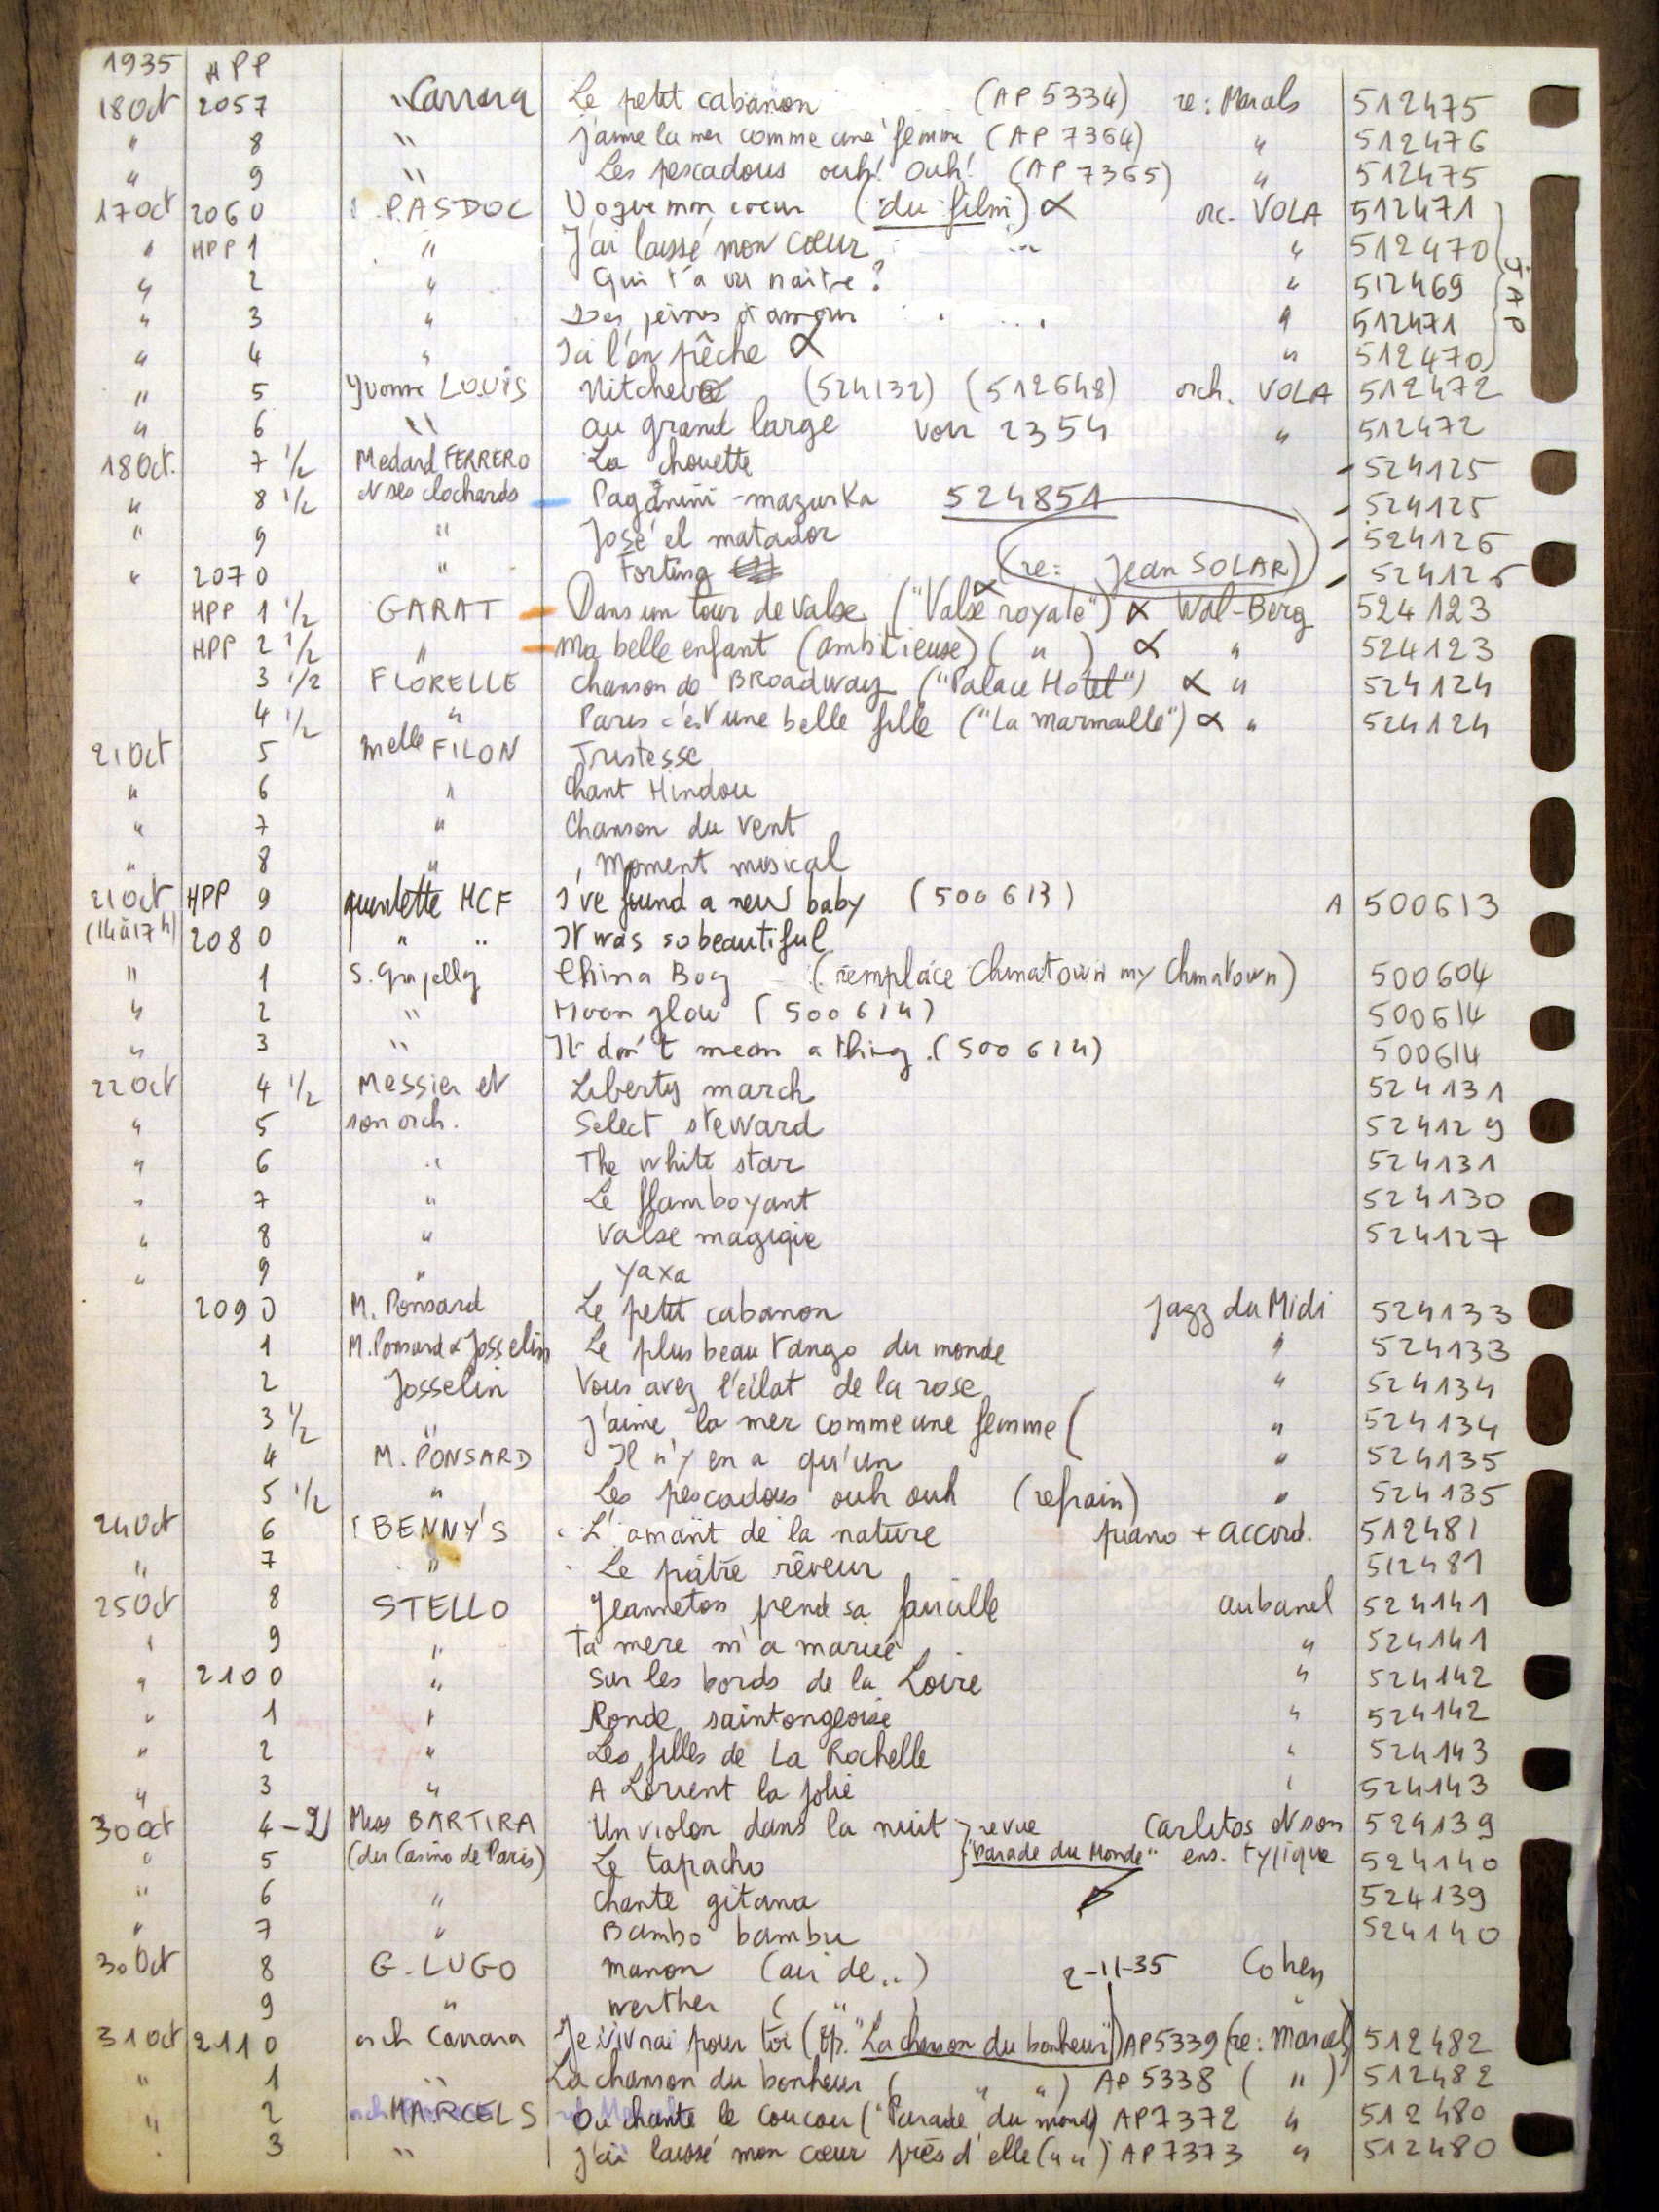 1935 HPP
18 Oct 2057 Carrara Le petit cabanon (AP 5334) re: Marcels 512475
" 8 " J'aime la mer comme une femme (AP 7364) " 512476
" 9 " Les pescadous ouh! Ouh! (AP 7365) " 512475
17 Oct 2060 PASDOC Vogue mon coeur (du film) α orc. VOLA 512471
" HPP 1 " J'ai laissé mon coeur " 512470
" 2 " Qui t'a vu naitre? " 512469
" 3 " Des peines d'amour " 512471
" 4 " Ici l'on pêche α " 512470
" 5 Yvonne LOUIS Nitchevo (524132) (512648) orch. VOLA 512472
" 6 " au grand large voir 2354 " 512472
18 Oct. 7 1/2 Medard FERRERO La chouette 524125
" 8 1/2 et ses clochards Paganini-mazurka 524851 524125
" 9 " José el matador 524126
" 2070 " Forting (re: Jean SOLAR) 524126
HPP 1 1/2 GARAT Dans un tour de valse ("Valse royale") α Wal-Berg 524123
HPP 2 1/2 " Ma belle enfant (ambitieuse) ( " ) α " 524123
3 1/2 FLORELLE Chanson de BROadway ("Palace Hotel") α " 524124
4 1/2 " Paris c'est une belle fille ("La marmaille") α " 524124
21 Oct 5 Melle FILON Tristesse
" 6 " Chant Hindou
" 7 " Chanson du vent
" 8 " Moment musical
21 Oct HPP 9 quintette HCF I've found a new baby (500613) A 500613
(14 à 17 h) 2080 " " It was so beautiful
" 1 S. Grapelly China Boy (remplace Chinatown my Chinatown) 500604
" 2 " Moon glow (500614) 500614
" 3 " It don't mean a thing. (500614) 500614
22 Oct 4 1/2 Messier et Liberty march 524131
" 5 son orch. Select steward 524129
" 6 " The white star 524131
" 7 " Le flamboyant 524130
" 8 " Valse magique 524127
" 9 " Yaxa
2090 M. Ponsard Le petit cabanon Jazz du Midi 524133
1 M. Ponsard & Josselin Le plus beau tango du monde " 524133
2 Josselin Vous avez l'éclat de la rose " 524134
3 1/2 " J'aime la mer comme une femme ( " 524134
4 M. PONSARD Il n'y en a qu'un " 524135
5 1/2 " Les pescadous ouh ouh (refrain) " 524135
24 Oct 6 BENNY'S L'amant de la nature piano + accord. 512481
" 7 " Le pâtre rêveur 512481
25 Oct 8 STELLO Jeanneton prend sa faucille aubanel 524141
" 9 " Ta mere m'a marié " 524141
" 2100 " Sur les bords de la Loire " 524142
" 1 " Ronde saintongeoise " 524142
" 2 " Les filles de La Rochelle " 524143
" 3 " A Lorient la jolie " 524143
30 Oct 4-2 Miss BARTIRA Un violon dans la nuit } revue Carlitos et son 524139
" 5 (du Casino de Paris) Le tapacho "Parade du Monde" ens. typique 524140
" 6 " Chante gitana 524139
" 7 " Bambo bambu 524140
30 Oct 8 G. LUGO Manon (air de..) 2-11-35 Cohen
9 " Werther ( " ) "
31 Oct 2110 orch Carrara Je vivrai pour toi (Op. "La chanson du bonheur") AP5339 (re: Marcel) 512482
" 1 " La chanson du bonheur ( " " ) AP 5338 ( " ) 512482
" 2 MARCELS Ou chante le coucou ("Parade du monde) AP7372 " 512480
" 3 " J'ai laissé mon coeur près d'elle ( " " ) AP 7373 " 512480